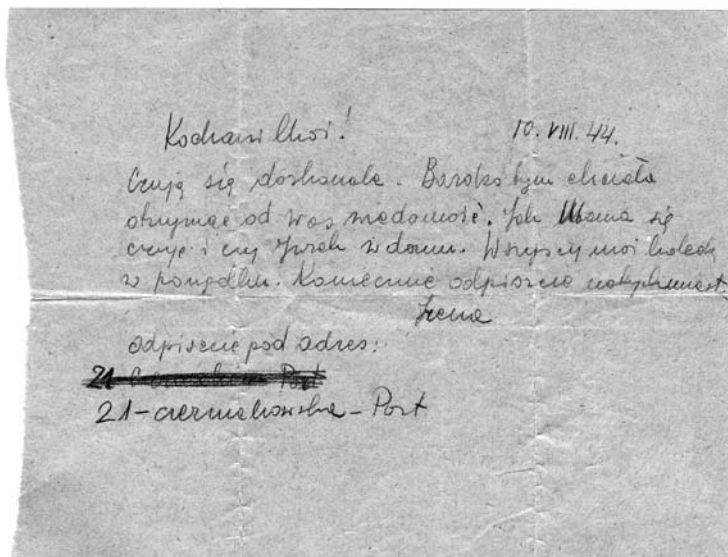 Kochani Moi! 10. VIII. 44.
Czuję się doskonale. Bardzo bym chciała
otrzymać od Was wiadomość. Jak Mama się
czuje i czy Jurek w domu. Wszyscy moi koledzy
w porządku. Koniecznie odpiszcie natychmiast.
Irena
odpiszcie pod adres:
21
21-czerniakowska - Port